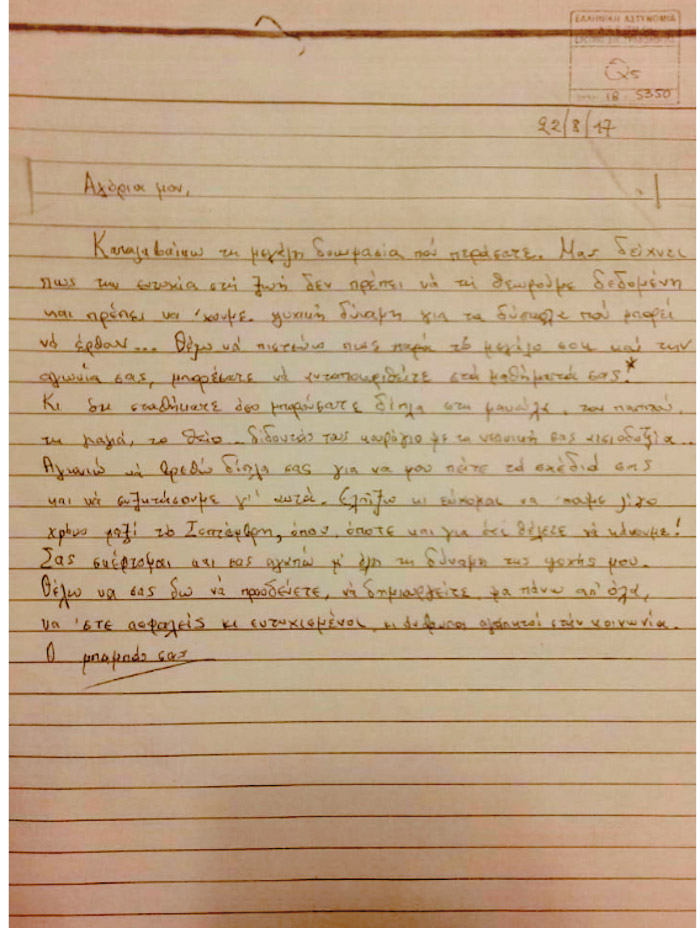 ΕΛΛΗΝΙΚΗ ΑΣΤΥΝΟΜΙΑ
Q5
18 5350
22/8/17
Αγόρια μου,
Καταλαβαίνω τη μεγάλη δοκιμασία πού περάσατε. Μας δείχνει
πως την ευτυχία στή ζωή δεν πρέπει νά τή θεωρούμε δεδομένη
και πρέπει να 'χουμε ψυχική δύναμη για τα δύσκολα πού μπορεί
νά έρθουν... Θέλω νά πιστεύω πως παρά τό μεγάλο σοκ καί την
αγωνία σας, μπορέσατε νά ανταποκριθείτε στά μαθήματά σας!*
Κι ότι σταθήκατε όσο μπορούσατε δίπλα στη μανούλα, τον παππού,
τη γιαγιά, το θείο... δίδοντάς τους κουράγιο με τη νεανική σας αισιοδοξία...
Αγωνιώ νά βρεθώ δίπλα σας για να μου πείτε τά σχέδιά σας
και νά συζητήσουμε γι' αυτά. Ελπίζω κι εύχομαι να 'παμε λίγο
χρόνο μαζί τό Σεπτέμβρη, όπου, όποτε και για ότι θέλετε νά κάνουμε!
Σας σκέφτομαι και σας αγαπώ μ' όλη τη δύναμη της ψυχής μου.
Θέλω να σας δω νά προοδεύετε, νά δημιουργείτε, μα πάνω απ' όλα,
να 'στε ασφαλείς κι ευτυχισμένοι, κι άνθρωποι αγαπητοί στήν κοινωνία.
Ο μπαμπάς σας